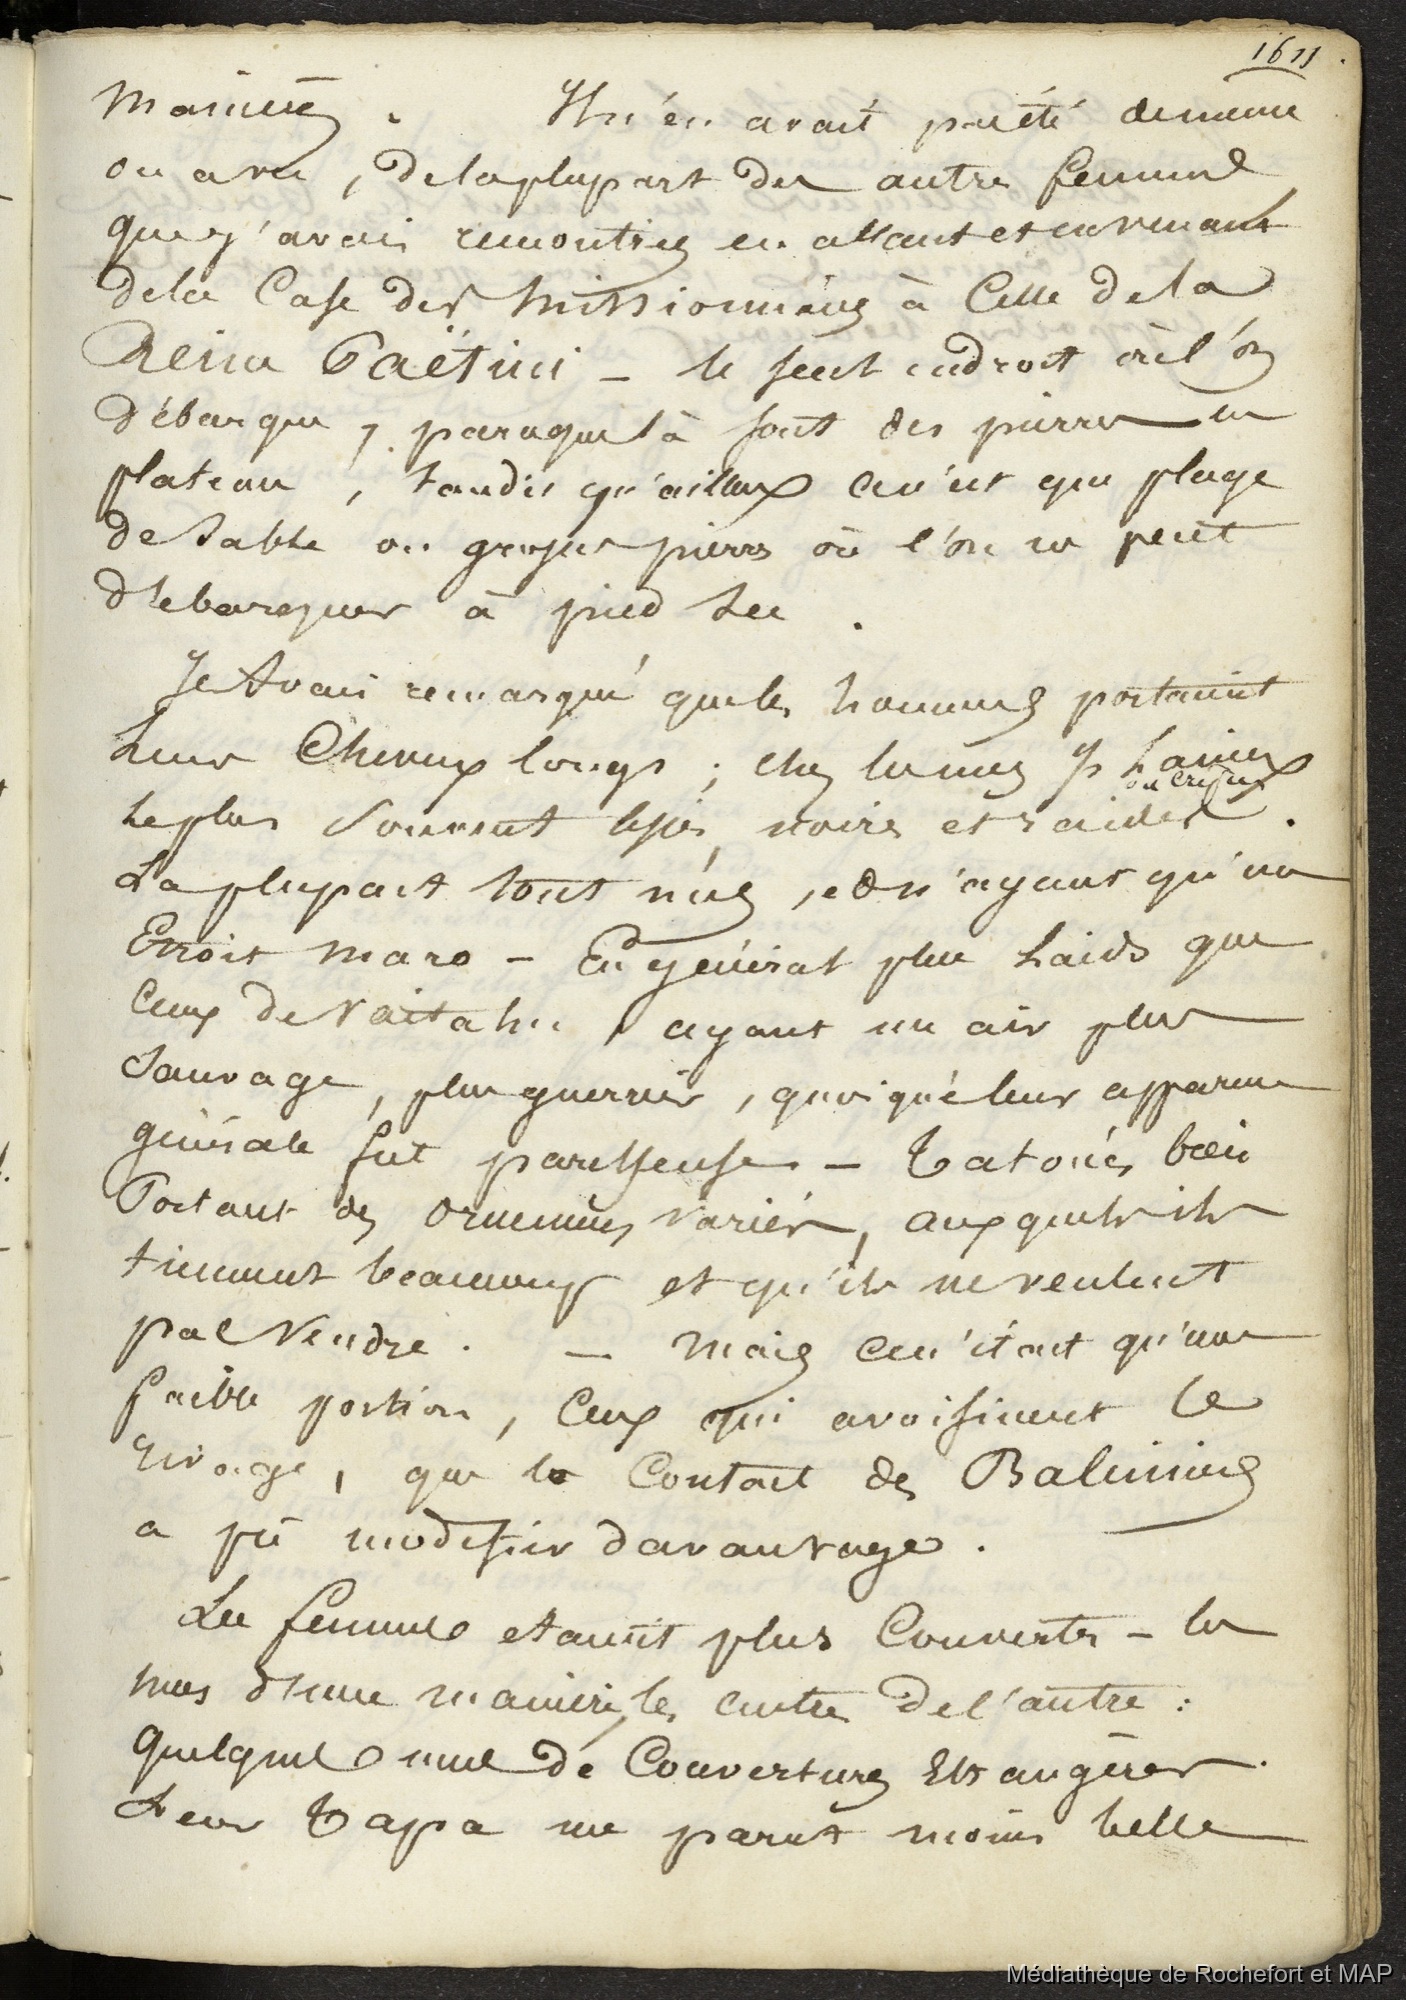 1611
manières. Il n'en avait pas été de même
ou avec, de la plupart des autres femmes
que j'avais rencontrées en allant et en venant
de la Case des Missionnaires à Celle de la
Reina Paëtini – le seul endroit où l'on
débarque, parceque là sont des pierres en
plateau, tandis qu'ailleurs ce n'est que plage
de sable ou grosses pierres où l'on ne peut
débarquer à pied sec.
Je Avais remarqué que les hommes portaient
leurs Cheveux longs; chez les uns
ou crépus
le plus souvent lisses, noirs et raides.
La plupart tout nus, et n'ayant qu'un
Etroit maro – En général plus laids que
Ceux de Vaitahu, ayant un air plus
Sauvage, plus guerrier, quoique leur apparence
générale fut paresseuse – Tatoués, bien
Portant des ornemens variés, auxquels ils
tiennent beaucoup et qu'ils ne veulent
pas vendre. – Mais ce n'étant qu'une
faible portion, Ceux qui avoisinent le
rivage, que le Contact des Baleiniers
a pu modifier davantage.
Les femmes etaient plus Couvertes – les
unes d'une manière, les autres de l'autre :
quelques unes de Couvertures Etrangères.
Leur Tapa me parut moins belle
Médiathèque de Rochefort et MAP